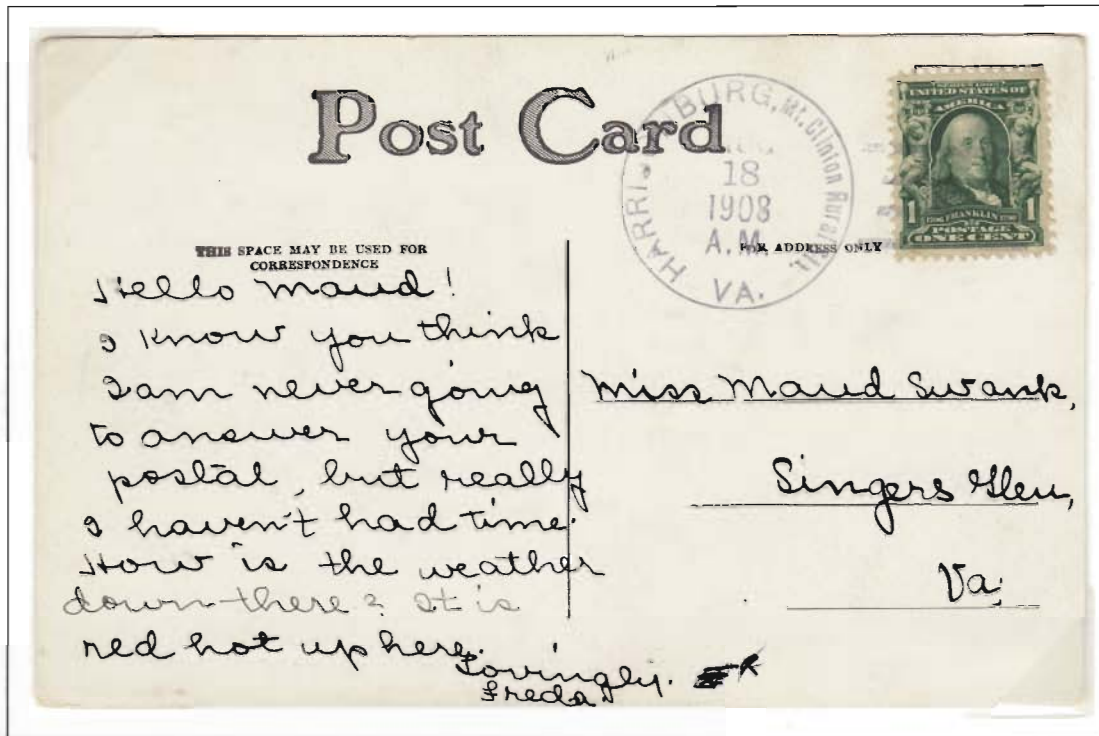 Post Card
HARRISBURG, Mt. Clinton Rural
18
1908
A.M.
VA.
UNITED STATES OF
AMERICA
1 FRANKLIN 1
POSTAGE
ONE CENT
THIS SPACE MAY BE USED FOR
CORRESPONDENCE
FOR ADDRESS ONLY
Hello Maud!
I know you think
I am never going
to answer your
postal, but really
I haven't had time.
How is the weather
down there? It is
red hot up here.
Lovingly.
Freda.
Miss Maud Swank,
Singers Glen,
Va.